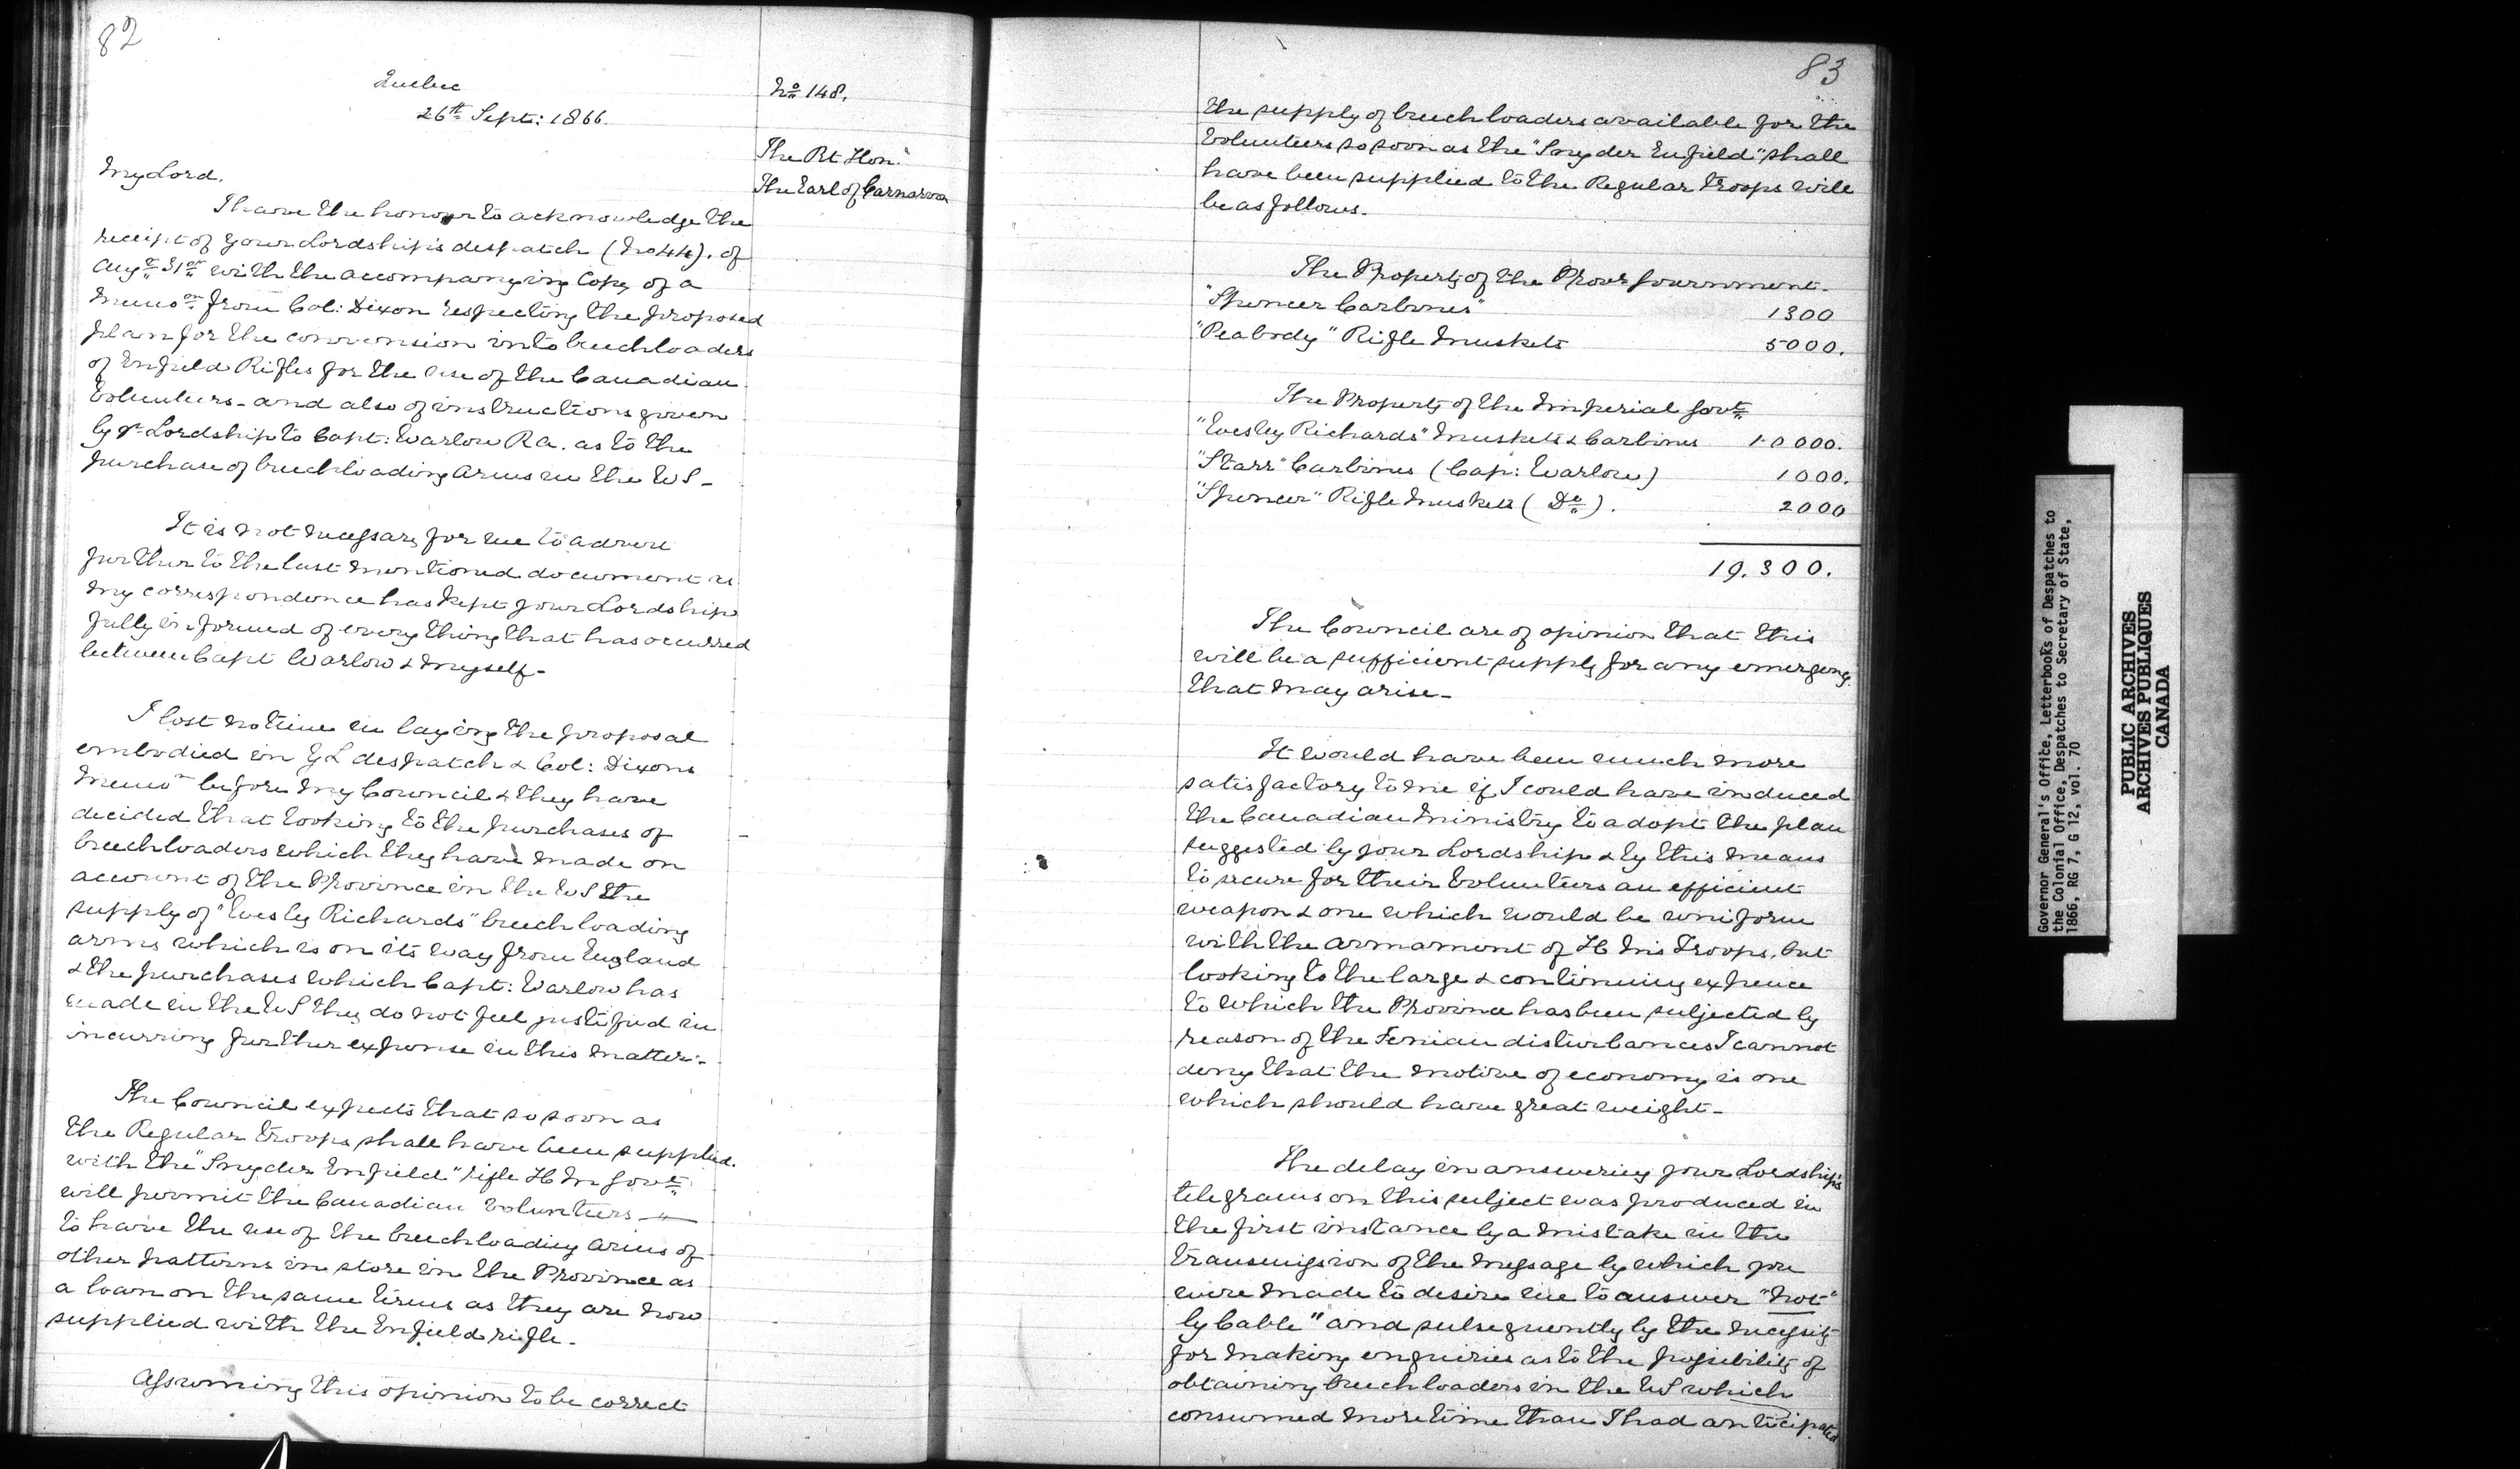 82
Quebec
26th Sept: 1866.
No 148.
The Rt Hon:
The Earl of Carnarvon
My Lord,
I have the honour to acknowledge the
receipt of your Lordship's despatch (No 44). of
Augt 31st with the accompanying Copy of a
Memon from Col: Dixon respecting the proposed
plan for the conversion into breechloaders
of Enfield Rifles for the use of the Canadian
Volunteers - and also of instructions given
by yr Lordship to Capt: Warlow Ra. as to the
purchase of breechloading Arms in the US -
It is not necessary for me to advert
further to the last mentioned document as
my correspondence has kept your Lordship
fully informed of every thing that has occurred
between Capt Warlow & myself -
I lost no time in laying the proposal
embodied in yL despatch & Col: Dixons
Memon before my Council & they have
decided that looking to the purchases of
breechloaders which they have made on
account of the Province in the US the
supply of "Wesley Richards" breechloading
arms which is on its way from England
& the purchases which Capt: Warlow has
made in the US they do not feel justified in
incurring further expense in this matter -
The Council expects that so soon as
the Regular troops shall have been supplied
with the "Snyder Enfield" rifle H M Govt
will permit the Canadian Volunteers
to have the use of the breechloading Arms of
other patterns in store in the Province as
a loan on the same terms as they are now
supplied with the Enfield rifle.
Assuming this opinion to be correct
83
the supply of breechloaders available for the
Volunteers so soon as the "Snyder Enfield" shall
have been supplied to the Regular Troops will
be as follows.
The Property of the Provl Government.
"Spencer Carbines" 1300
"Peabody" Rifle Muskets 5000.
The Property of the Imperial Govt
"Wesley Richards" Muskets & Carbines 10000.
"Starr" Carbines (Cap: Warlow) 1000.
"Spencer" Rifle Muskets (Do). 2000
19.300.
The Council are of opinion that this
will be a sufficient supply for any emergency
that may arise -
It would have been much more
satisfactory to me if I could have induced
the Canadian Ministry to adopt the plan
suggested by your Lordship & by this means
to secure for their Volunteers an efficient
weapon & one which would be uniform
with the armament of H Ms Troops, but
looking to the large & continuing expence
to which the Province has been subjected by
reason of the Fenian disturbances I cannot
deny that the motive of economy is one
which should have great weight -
The delay in answering your Lordship's
telegrams on this subject was produced in
the first instance by a mistake in the
transmission of the message by which you
were made to desire me to answer "not
by Cable" and subsequently by the necessity
for making enquiries as to the possibility of
obtaining breechloaders in the US which
consumed more time than I had anticipated
Governor General's Office, Letterbooks of Despatches to
the Colonial Office, Despatches to Secretary of State,
1866, RG 7, G 12, vol. 70
PUBLIC ARCHIVES
ARCHIVES PUBLIQUES
CANADA